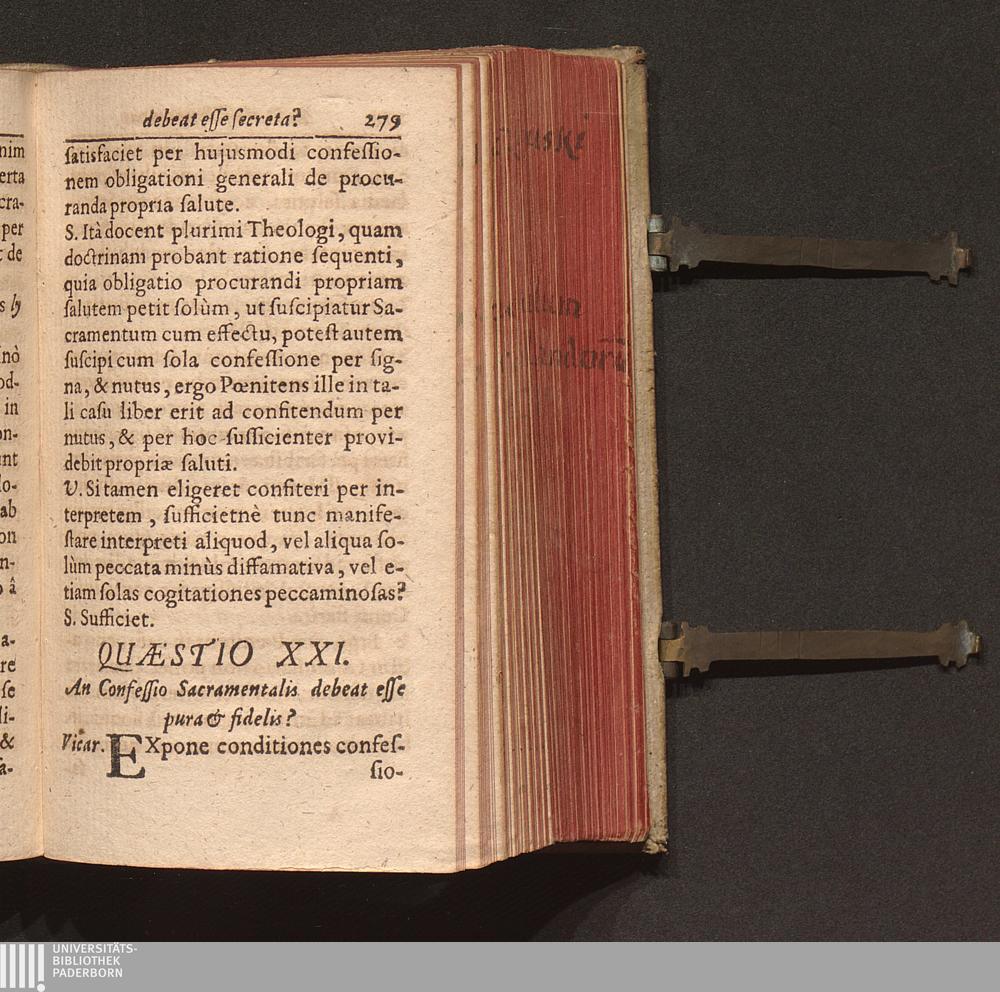 debeat eſſe ſecreta? 279
ſatisfaciet per hujusmodi confeſſio-
nem obligationi generali de procu-
randa propria ſalute.
S. Ità docent plurimi Theologi, quam
doctrinam probant ratione ſequenti,
quia obligatio procurandi propriam
ſalutem petit ſolùm, ut ſuſcipiatur Sa-
cramentum cum effectu, poteſt autem
ſuſcipi cum ſola confeſſione per ſig-
na, & nutus, ergo Pœnitens ille in ta-
li caſu liber erit ad confitendum per
nutus, & per hoc ſufficienter provi-
debit propriæ ſaluti.
V. Si tamen eligeret confiteri per in-
terpretem, ſufficietnè tunc manife-
ſtare interpreti aliquod, vel aliqua ſo-
lùm peccata minùs diffamativa, vel e-
tiam ſolas cogitationes peccaminoſas?
S. Sufficiet.
QUÆSTIO XXI.
An Confeſſio Sacramentalis debeat eſſe
pura & fidelis?
Vicar. EXpone conditiones confeſ-
ſio-
UNIVERSITÄTS-
BIBLIOTHEK
PADERBORN